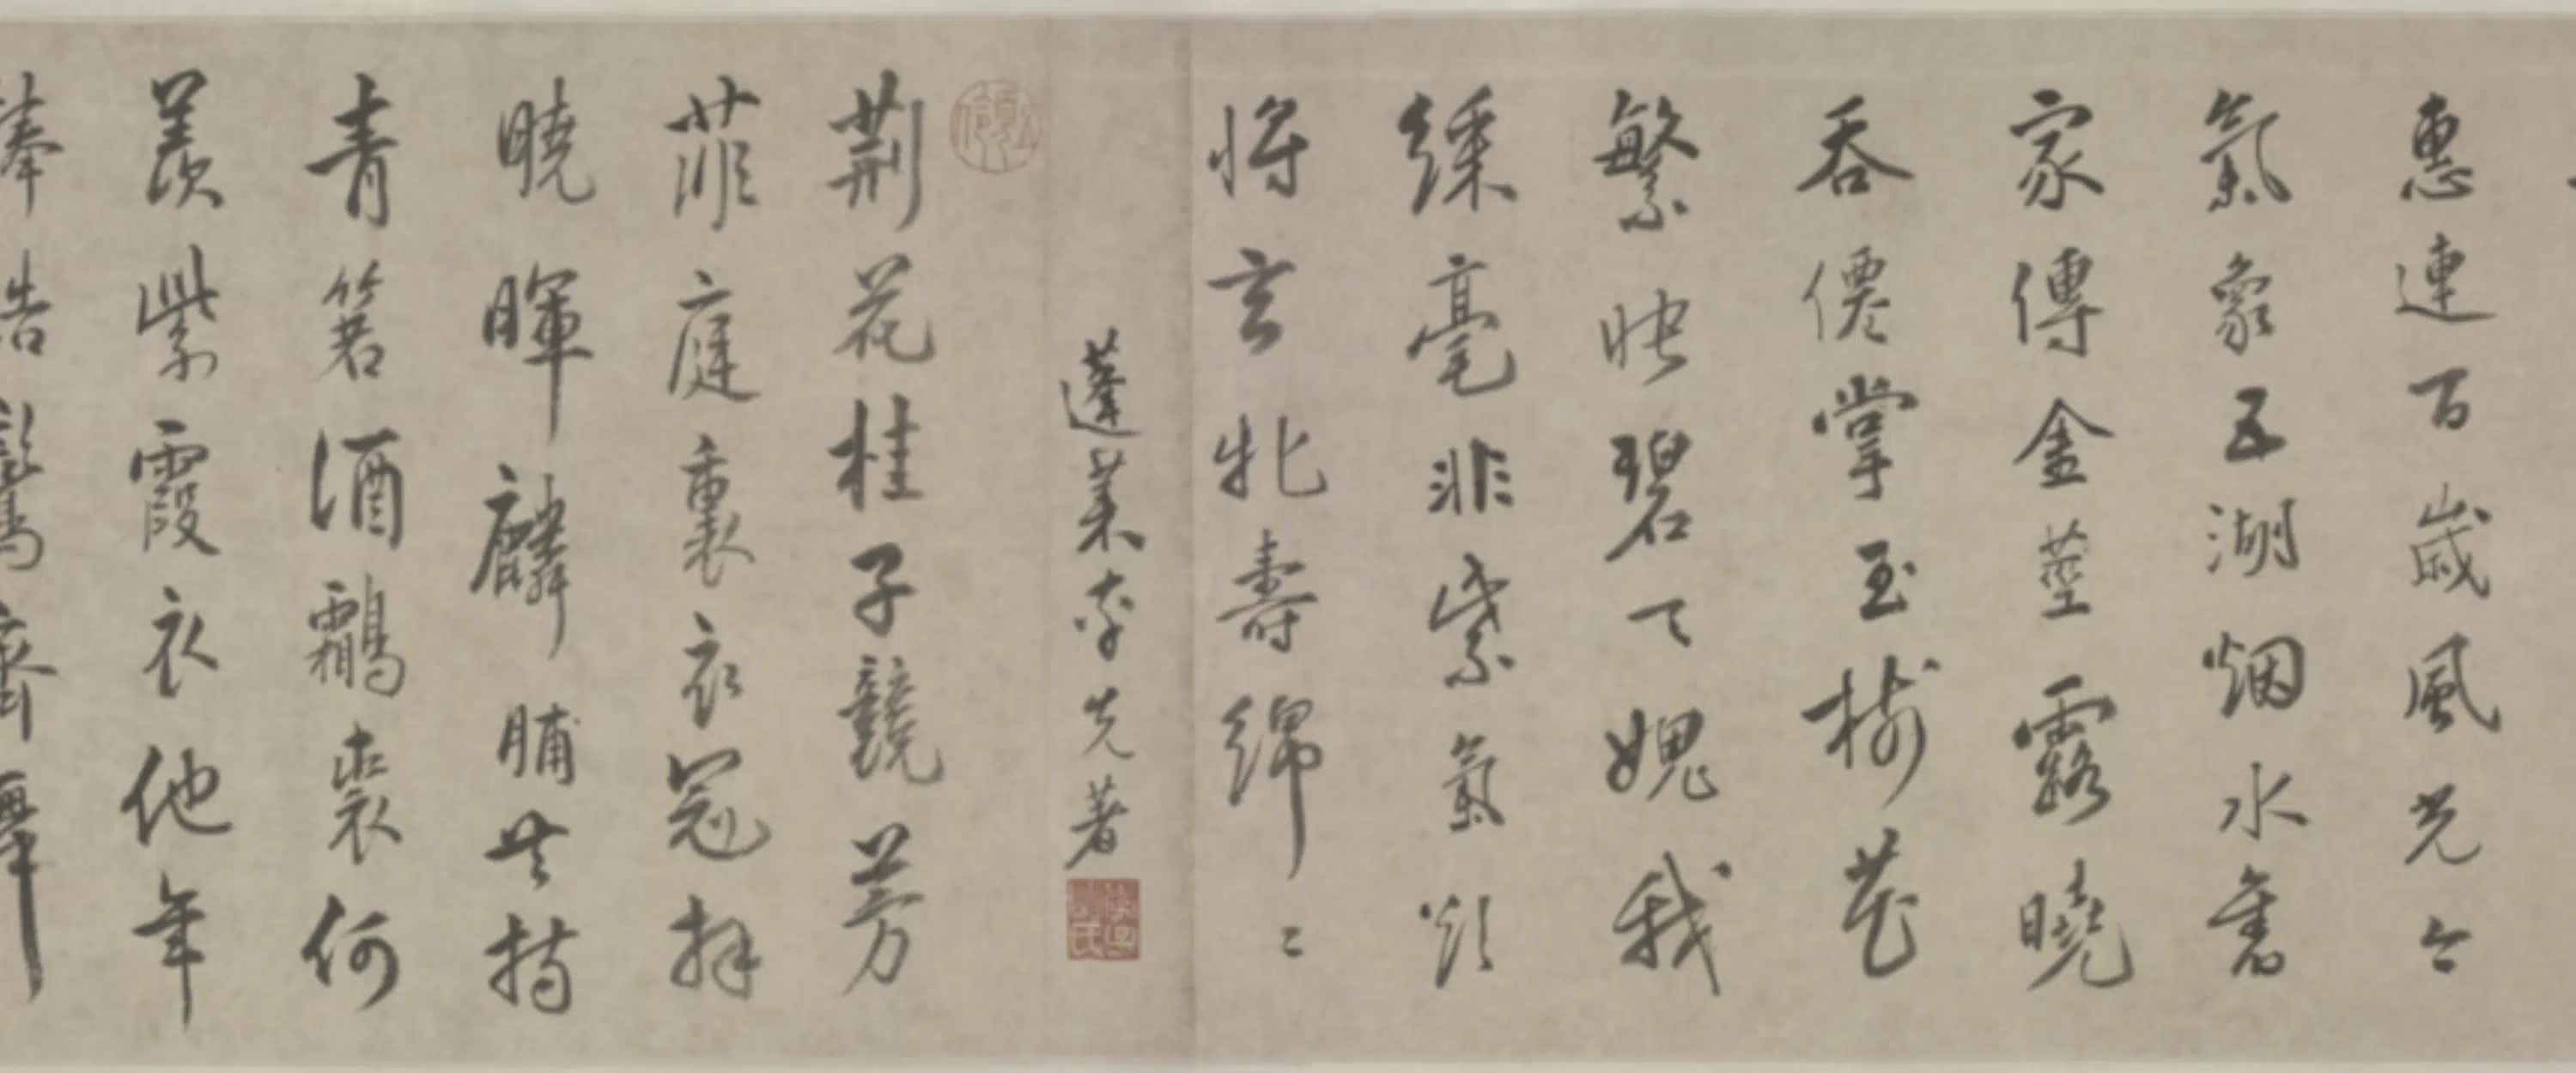 惠連百歲風光今
氣象五湖烟水舊
家傳金莖露曉
吞僊掌玉樹花
繁映碧天媿我
綵毫非紫氣頌
將玄牝壽綿〻
蓬萊李先著
荊花桂子競芳
菲庭裏衣冠拜
曉暉麟脯共持
青箬酒鸘裘何
羨紫霞衣他年